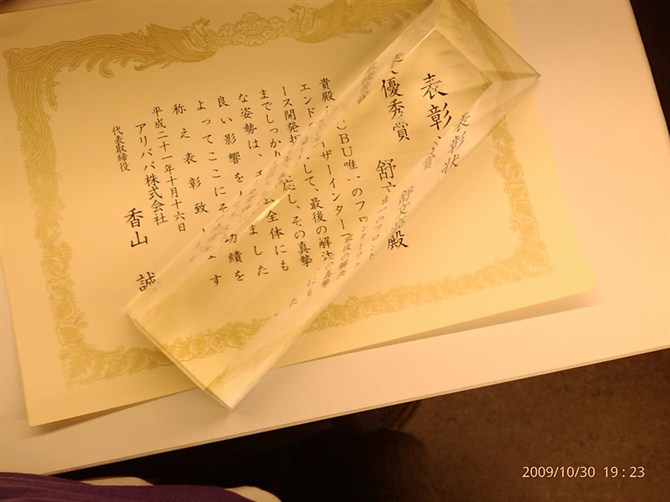 表彰状
優秀賞 舒文 殿
貴殿 BU唯一のフロ
エンド ーザーインター
ース開発 して、最後の解決
までしっかり 応し、その真摯
な姿勢は、 全体にも
良い影響を ました
よってここにそ 功績を
称え表彰致 す
平成二十一年十月十六日
アリババ株式会社
代表取締役 香山 誠
2009/10/30 19:23